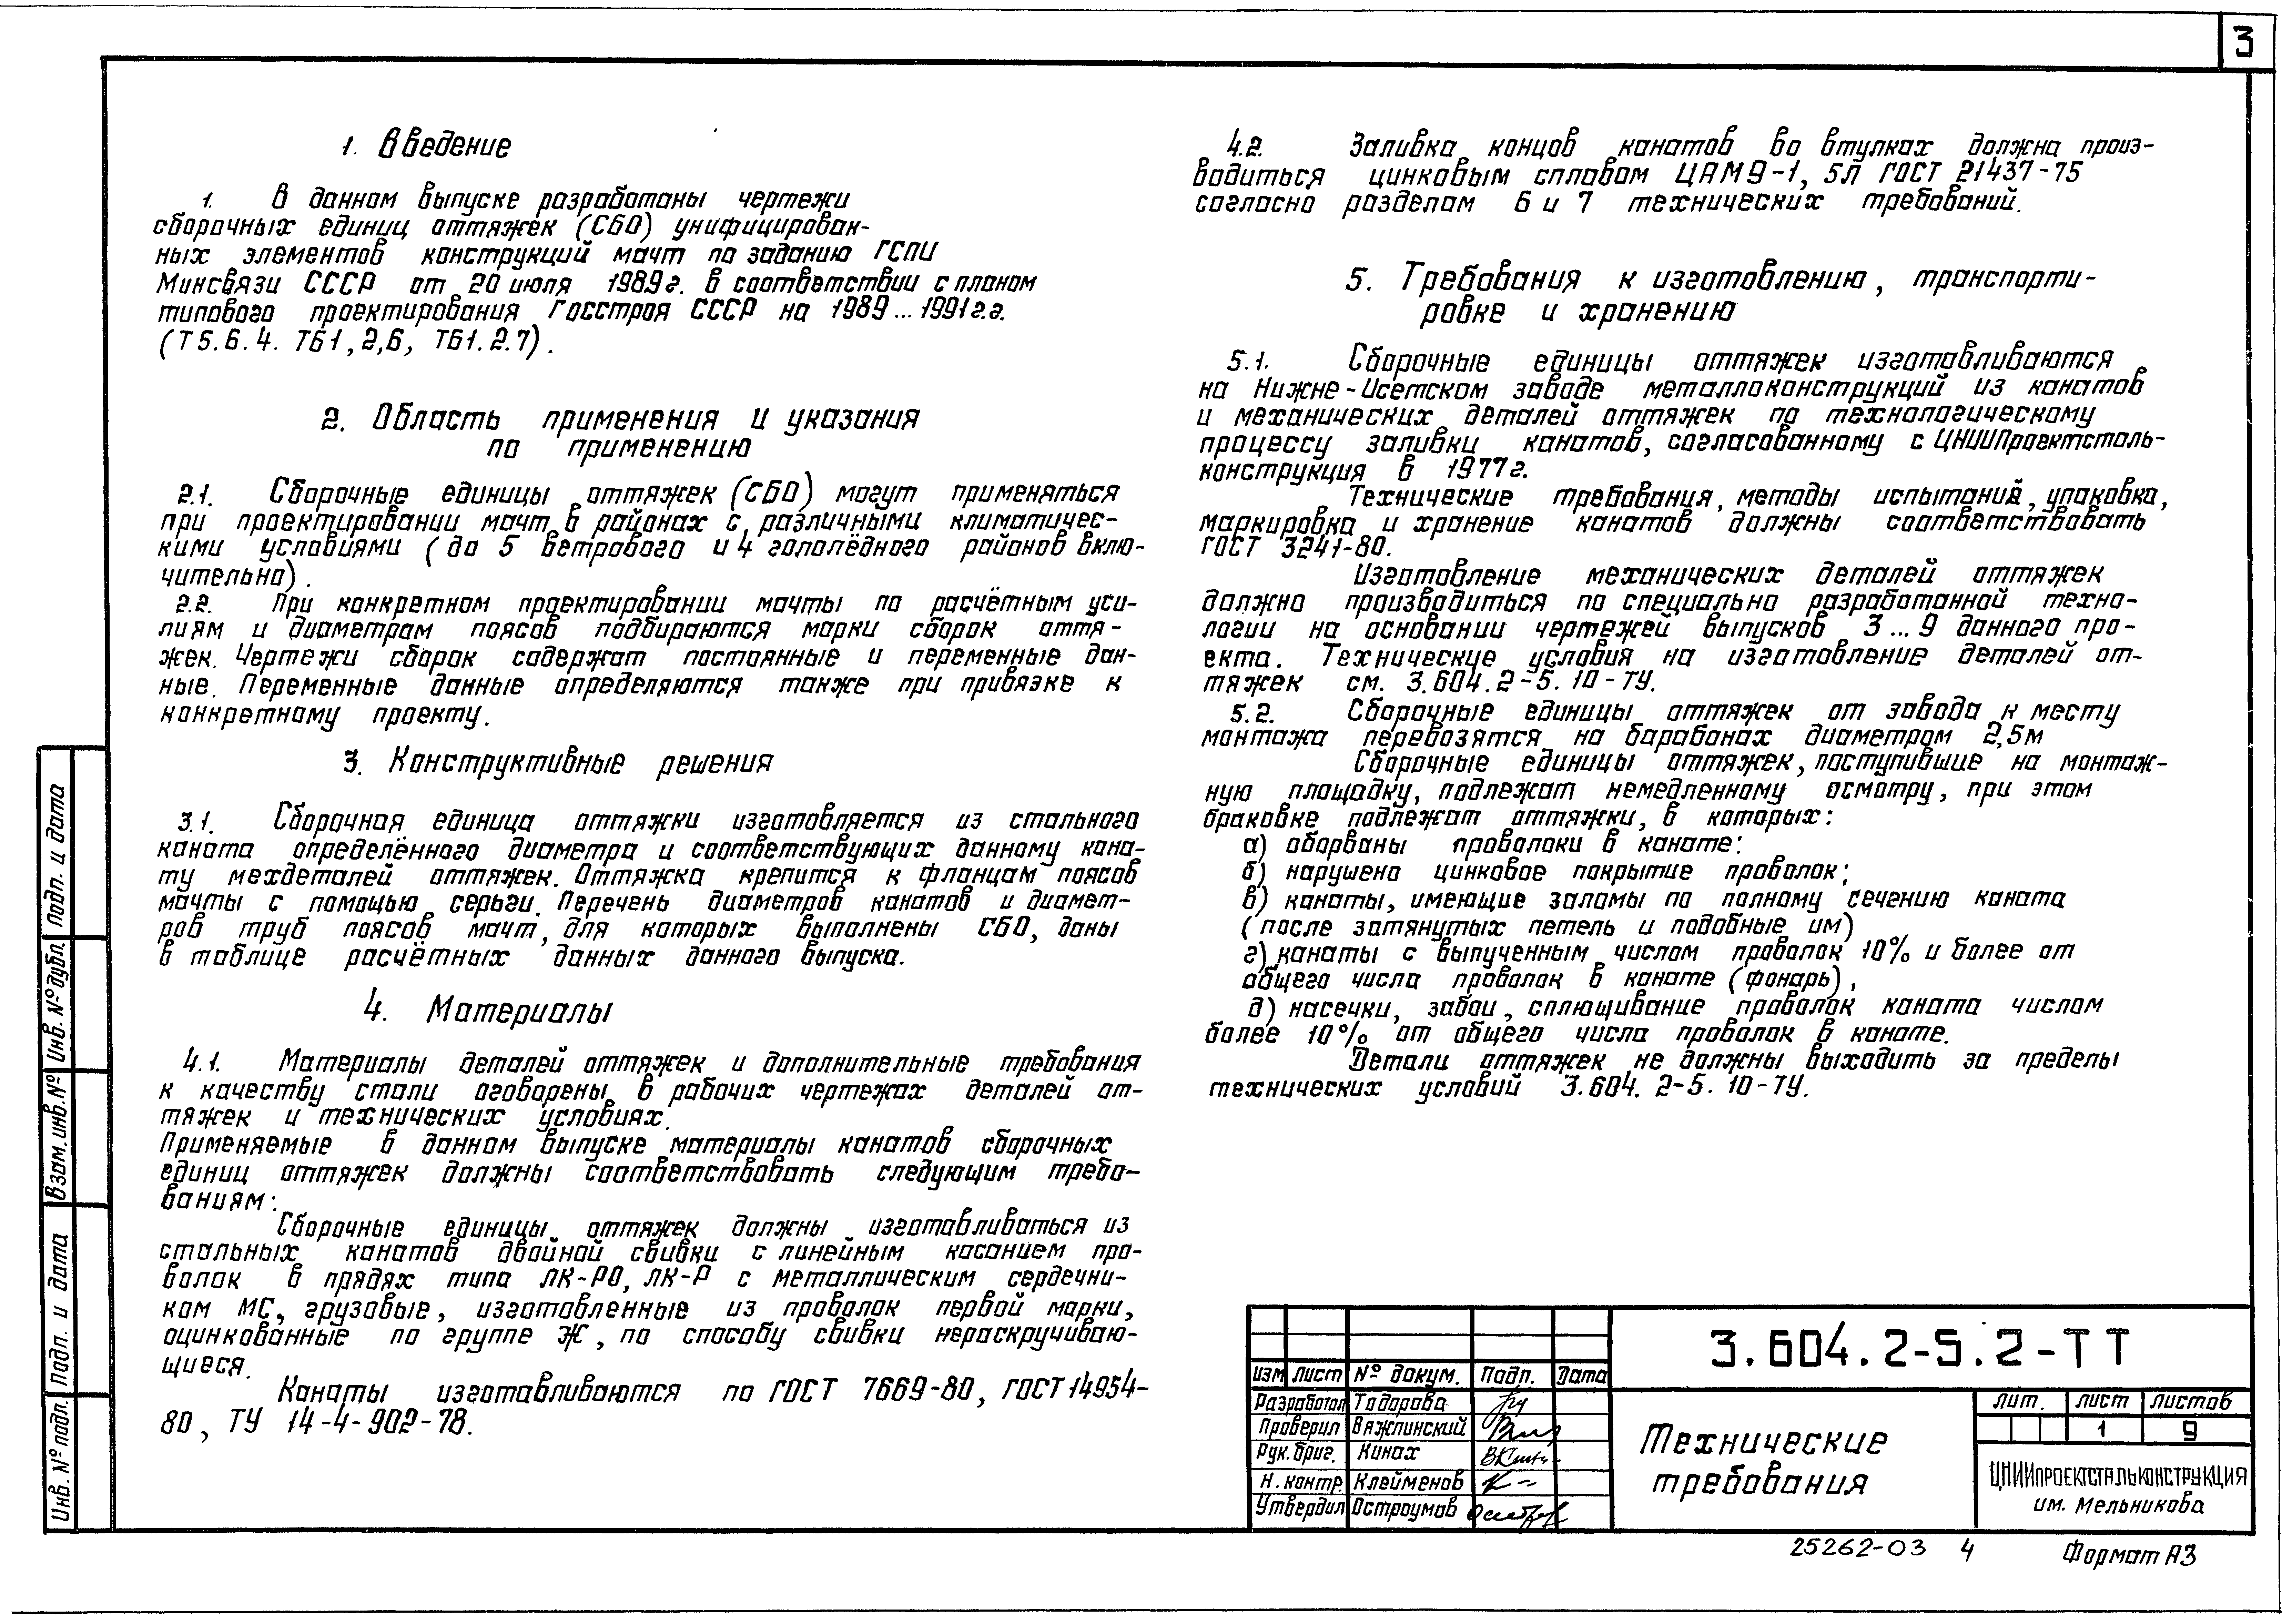 3
1. Введение
1. В данном выпуске разработаны чертежи
сборочных единиц оттяжек (СБО) унифицирован-
ных элементов конструкций мачт по заданию ГСПИ
Минсвязи СССР от 20 июля 1989г. в соответствии с планом
типового проектирования Госстроя СССР на 1989...1991г.г.
(Т5.6.4. ТБ1,2,6, ТБ1.2.7).
2. Область применения и указания
по применению
2.1. Сборочные единицы оттяжек (СБО) могут применяться
при проектировании мачт в районах с различными климатичес-
кими условиями (до 5 ветрового и 4 гололёдного районов вклю-
чительно).
2.2. При конкретном проектировании мачты по расчётным уси-
лиям и диаметрам поясов подбираются марки сборок оття-
жек. Чертежи сборок содержат постоянные и переменные дан-
ные. Переменные данные определяются также при привязке к
конкретному проекту.
3. Конструктивные решения
3.1. Сборочная единица оттяжки изготовляется из стального
каната определённого диаметра и соответствующих данному кана-
ту мехдеталей оттяжек. Оттяжка крепится к фланцам поясов
мачты с помощью серьги. Перечень диаметров канатов и диамет-
ров труб поясов мачт, для которых выполнены СБО, даны
в таблице расчётных данных данного выпуска.
4. Материалы
4.1. Материалы деталей оттяжек и дополнительные требования
к качеству стали оговорены в рабочих чертежах деталей от-
тяжек и технических условиях.
Применяемые в данном выпуске материалы канатов сборочных
единиц оттяжек должны соответствовать следующим требо-
ваниям:
Сборочные единицы оттяжек должны изготавливаться из
стальных канатов двойной свивки с линейным касанием про-
волок в прядях типа ЛК-РО, ЛК-Р с металлическим сердечни-
ком МС, грузовые, изготовленные из проволок первой марки,
оцинкованные по группе Ж, по способу свивки нераскручиваю-
щиеся.
Канаты изготавливаются по ГОСТ 7669-80, ГОСТ 14954-
80, ТУ 14-4-902-78.
4.2. Заливка концов канатов во втулках должна произ-
водиться цинковым сплавом ЦАМ9-1,5Л ГОСТ 21437-75
согласно разделам 6 и 7 технических требований.
5. Требования к изготовлению, транспорти-
ровке и хранению
5.1. Сборочные единицы оттяжек изготавливаются
на Нижне-Исетском заводе металлоконструкций из канатов
и механических деталей оттяжек по технологическому
процессу заливки канатов, согласованному с ЦНИИПроектсталь-
конструкция в 1977г.
Технические требования, методы испытаний, упаковка,
маркировка и хранение канатов должны соответствовать
ГОСТ 3241-80.
Изготовление механических деталей оттяжек
должно производиться по специально разработанной техно-
логии на основании чертежей выпусков 3...9 данного про-
екта. Технические условия на изготовление деталей от-
тяжек см. 3.604.2-5.10-ТУ.
5.2. Сборочные единицы оттяжек от завода к месту
монтажа перевозятся на барабанах диаметром 2,5м
Сборочные единицы оттяжек, поступившие на монтаж-
ную площадку, подлежат немедленному осмотру, при этом
браковке подлежат оттяжки, в которых:
а) оборваны проволоки в канате:
б) нарушено цинковое покрытие проволок;
в) канаты, имеющие заломы по полному сечению каната
(после затянутых петель и подобные им)
г) канаты с выпученным числом проволок 10% и более от
общего числа проволок в канате (фонарь),
д) насечки, забои, сплющивание проволок каната числом
более 10% от общего числа проволок в канате.
Детали оттяжек не должны выходить за пределы
технических условий 3.604.2-5.10-ТУ.
Подп. и дата
Инв. № дубл.
Взам. инв. №
Подп. и дата
Инв. № подл.
3.604.2-5.2-ТТ
Изм лист № докум. Подп. Дата
Разработал Тодорова
Проверил Вяжлинский
Рук. бриг. Кинах
Н. контр. Клейменов
Утвердил Остроумов
Технические
требования
лит. лист листов
1 9
ЦНИИПРОЕКТСТАЛЬКОНСТРУКЦИЯ
им. Мельникова
25262-03 4
Формат А3